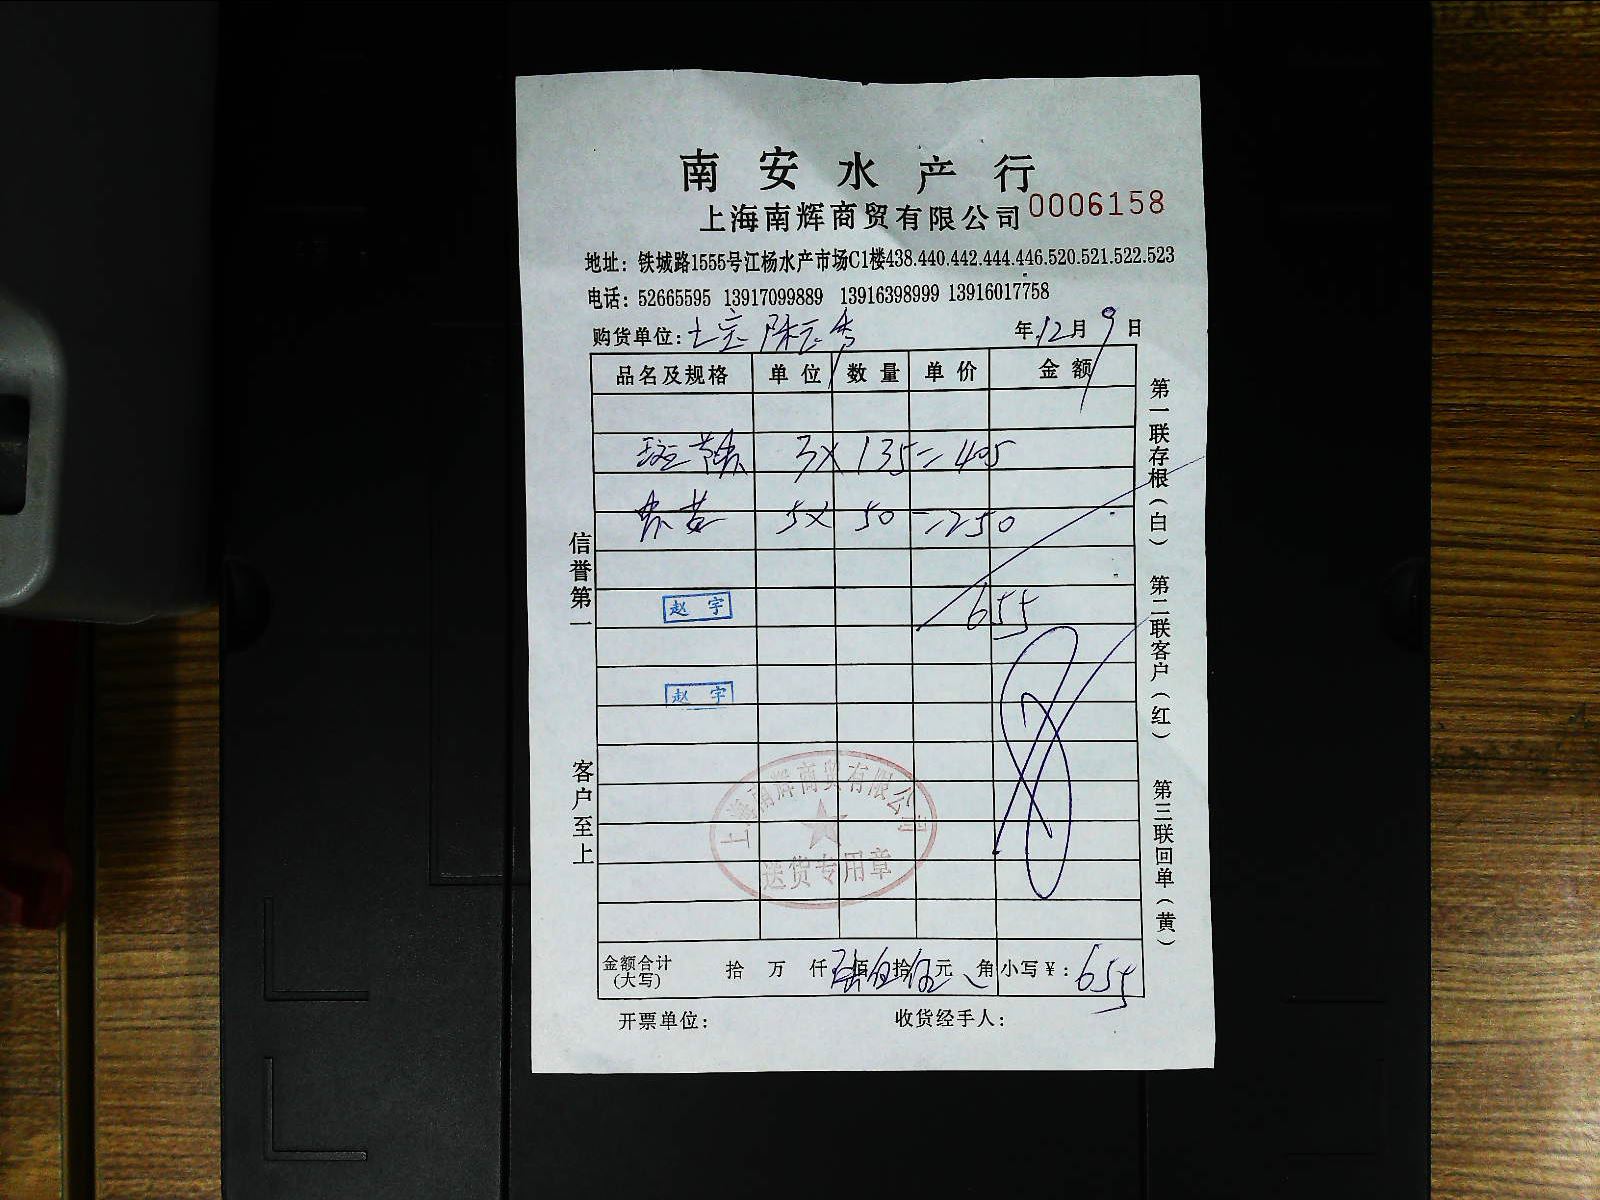 南安水产行
上海南辉商贸有限公司 0006158
地址：铁城路1555号江杨水产市场C1楼438.440.442.444.446.520.521.522.523
电话：52665595 13917099889 13916398999 13916017758
购货单位： 年12月9日
品名及规格 单位 数量 单价 金额
3×135=405
5×50=250
655
赵宇
赵宇
上海南辉商贸有限公司
送货专用章
金额合计(大写) 拾 万 仟 陆佰伍拾伍元 角 小写￥：655
开票单位： 收货经手人：
信誉第一
客户至上
第一联存根(白)
第二联客户(红)
第三联回单(黄)